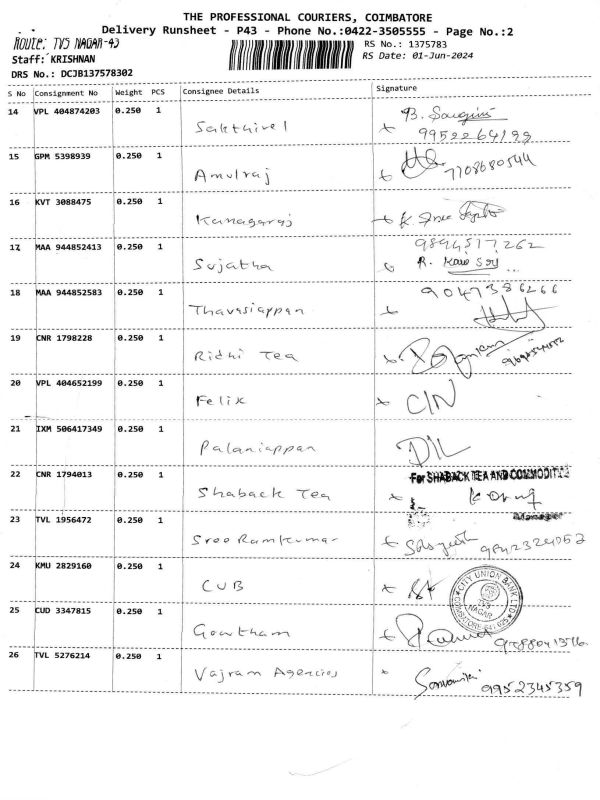 THE PROFESSIONAL COURIERS, COIMBATORE
Delivery Runsheet - P43 - Phone No.:0422-3505555 - Page No.:2
ROUTE: TVS NAGAR-43
RS No.: 1375783
Staff: KRISHNAN
RS Date: 01-Jun-2024
DRS No.: DCJB137578302
S No Consignment No Weight PCS Consignee Details Signature
14 VPL 404874203 0.250 1 Sakthivel B.
9952264199
15 GPM 5398939 0.250 1 Amulraj 7708680544
16 KVT 3088475 0.250 1 Kanagaraj K. Sree
17 MAA 944852413 0.250 1 Sujatha 9894517262
R.
18 MAA 944852583 0.250 1 Thavasiappan 9047386266
19 CNR 1798228 0.250 1 Ridhi Tea
20 VPL 404652199 0.250 1 Felix C/N
21 IXM 506417349 0.250 1 Palaniappan D/L
22 CNR 1794013 0.250 1 Shaback Tea For SHABACK TEA AND COMMODITIES
Manager
23 TVL 1956472 0.250 1 Sree Ramkumar
24 KMU 2829160 0.250 1 CUB
CITY UNION BANK LTD.
TVS NAGAR
COIMBATORE-641 025
25 CUD 3347815 0.250 1 Gowtham
26 TVL 5276214 0.250 1 Vajram Agencies 9952345359